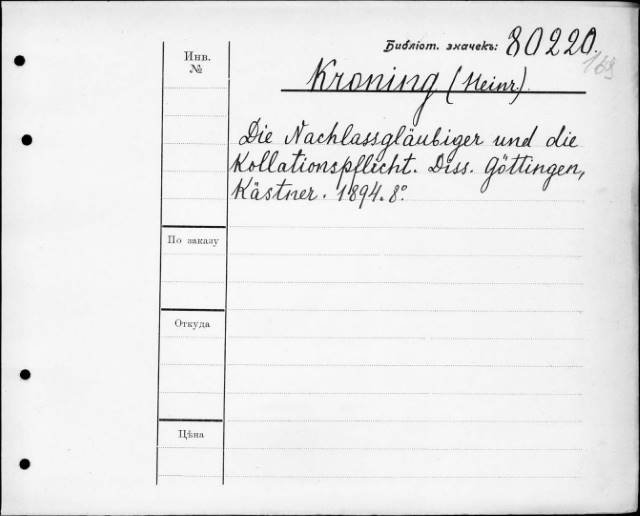 Библіот. значекъ: 80220.
163
Инв.
№
Kroning (Heinr.)
Die Nachlassgläubiger und die
Kollationspflicht. Diss. Göttingen,
Kästner. 1894. 8º.
По заказу
Откуда
Цѣна